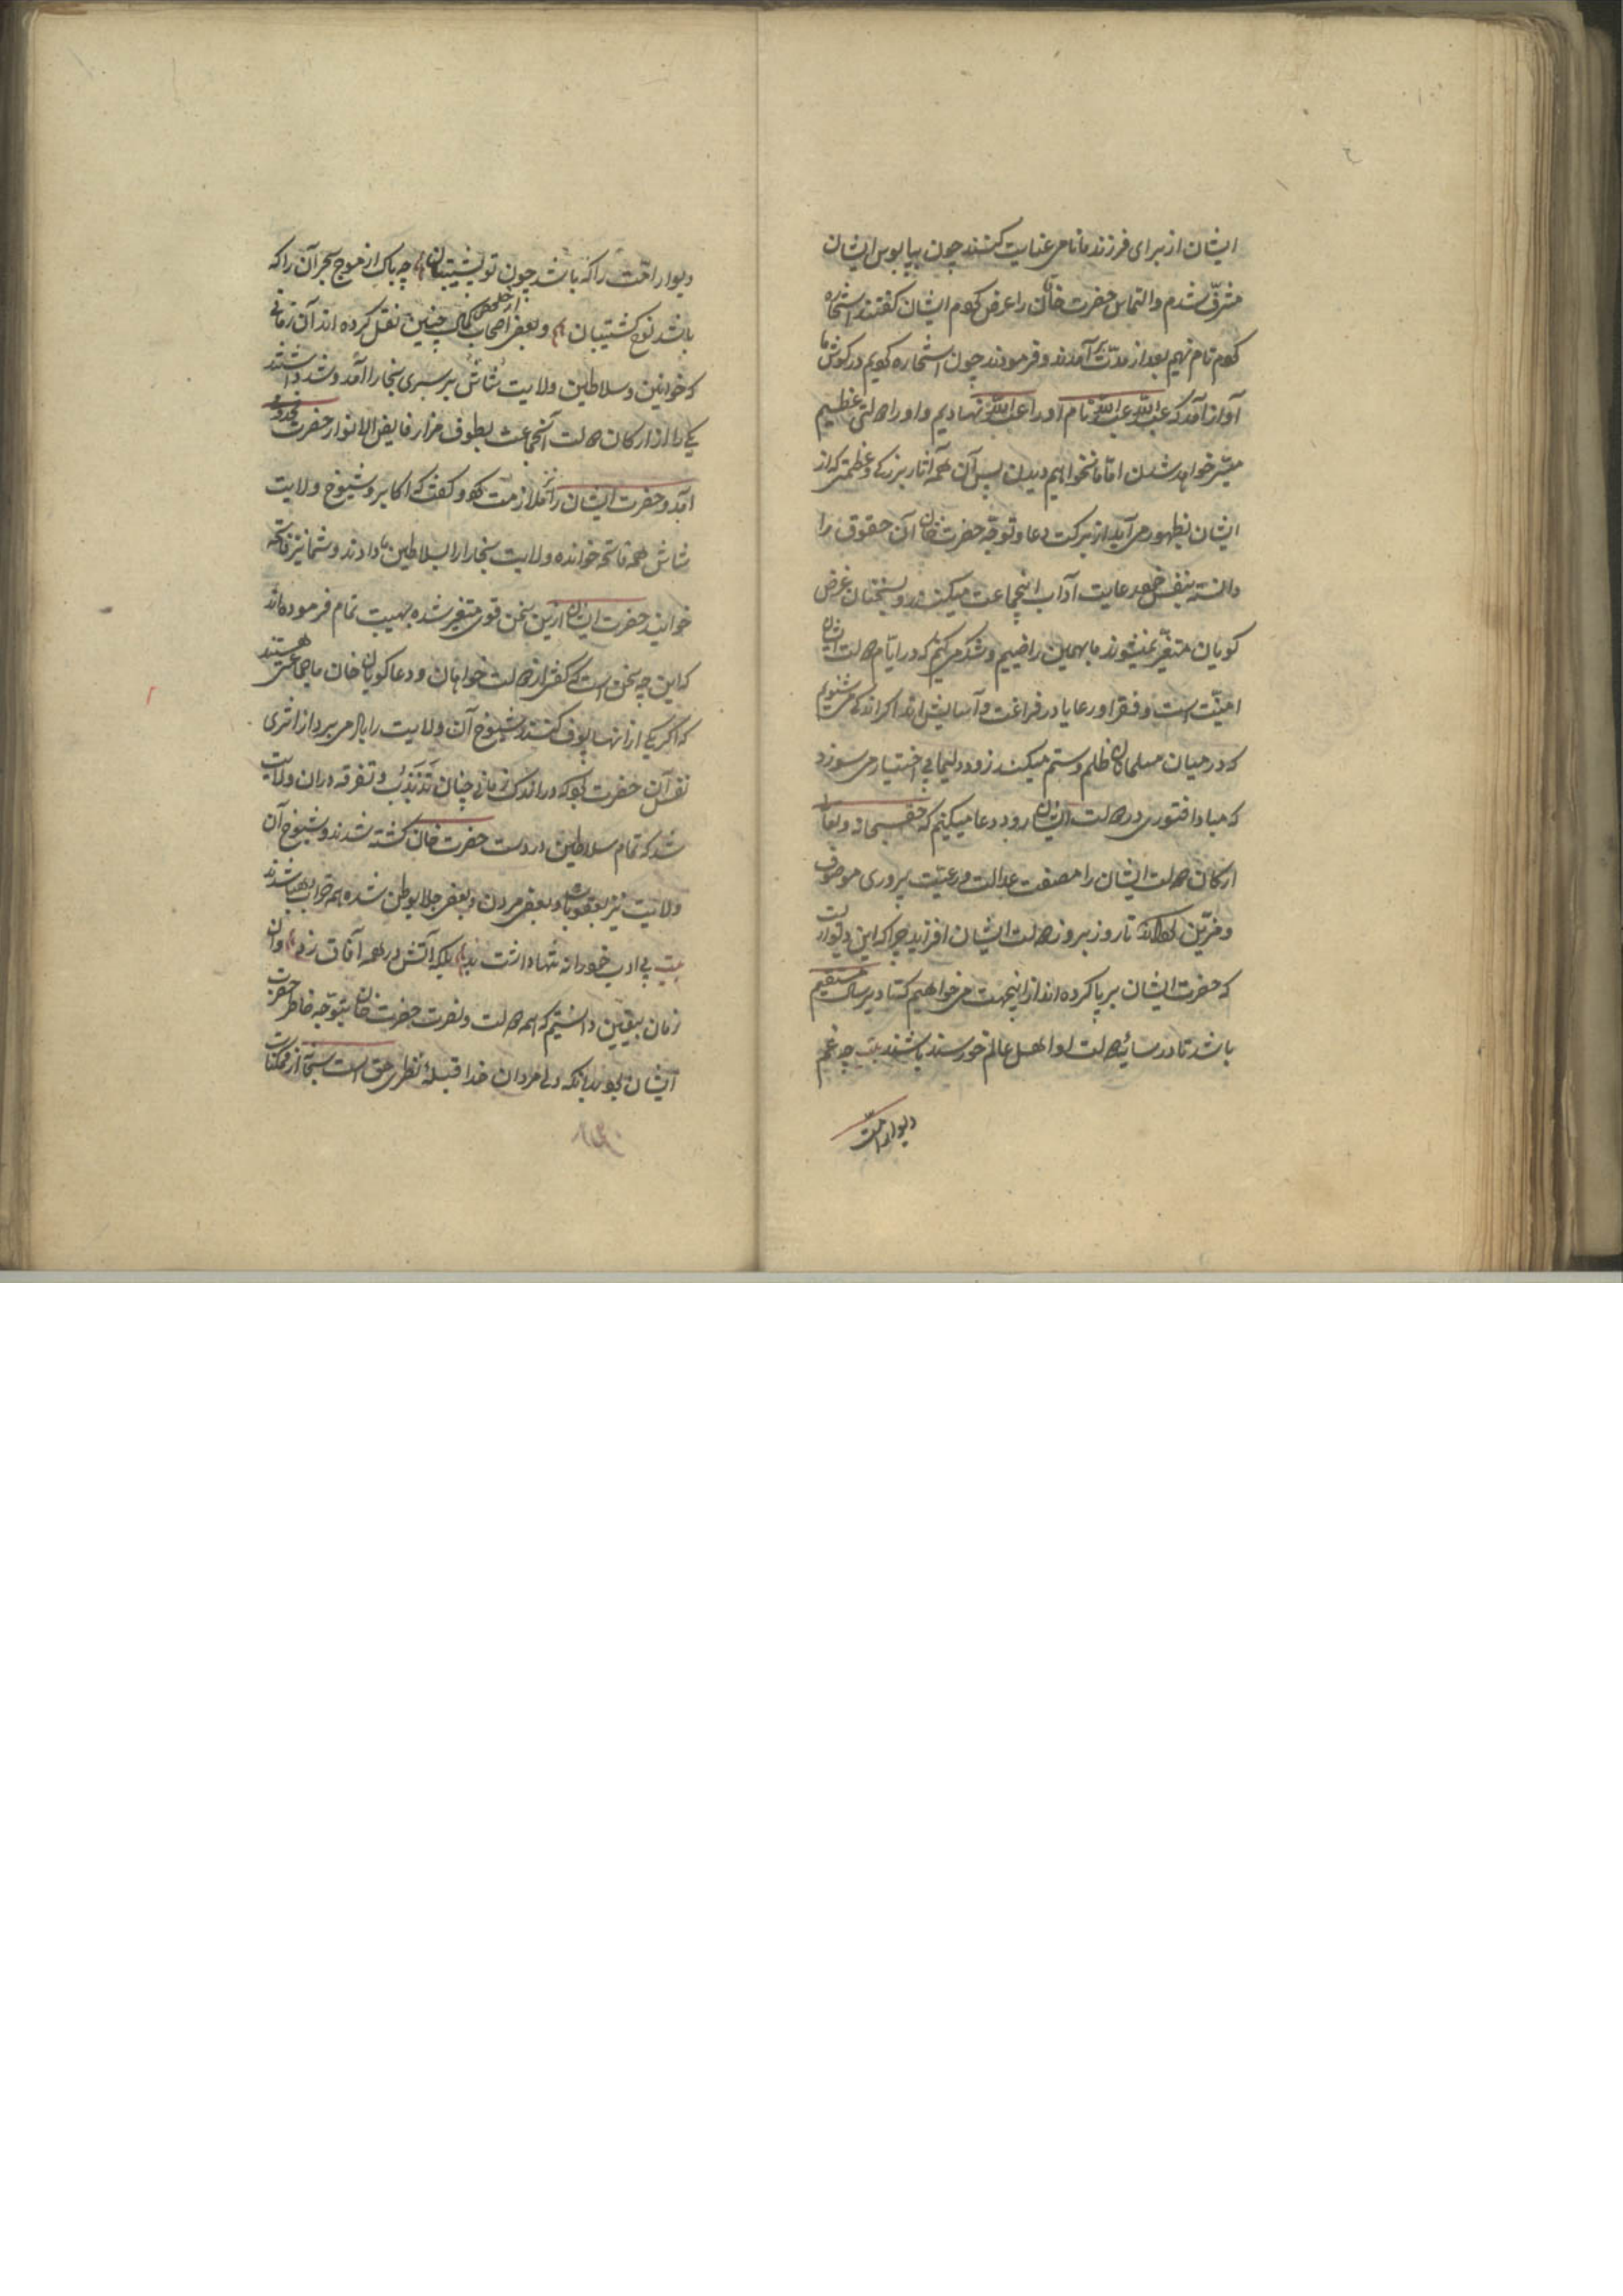 ایشان از برای فرزند ما نامی عنایت کنند چون بپابوس ایشان
مشرّف شدم والتماس حضرت خان را عرض کردم ایشان کفتند استخاره
کردم نام نهیم بعد از مدّت برآمدند و فرمودند چون استخاره کردیم در کوش ما
آواز آمد که عبدالله عبدالله نام او را عبدالله نهادیم و او را دولتی عظیم
میسّر خواهد شدن امّا ما نخواهیم دیدن پس آن همه آثار بزرکی و عظمتی که از
ایشان بظهور می آید از برکت دعا و توجّه حضرت خان آن حقوق را
دانسته بنفس خود رعایت آداب اینجماعت میکنند و بسخنان غرض
کویان متغیّر نمیشوند ما بهمین راضییم و شکر می کنیم که در ایّام دولت ایشان
امنیّت است و فقرا و رعایا در فراغت و آسایش اند اکر اندکی می شنویم
که در میان مسلمانان ظلم و ستم میکنند زود دلهای بی اختیار می سوزد
که مبادا فتوری در دولت ایشان رود دعا میکنیم که حق سبحانه و تعالی
ارکان دولت ایشان را بصفت عدالت و رعیّت پروری موصوف
و مزیّن کرداند تا روز بروز دولت ایشان افزاید چرا که این دیواریست
که حضرت ایشان برپا کرده اند از اینجهت می خواهیم که تا دیر سال مستقیم
باشد تا در سایهٔ دولت او اهل عالم خورسند باشند بیت چه غم
دیوار امّت
دیوار امّت را که باشد چون تو پشتیبان چه باک از موج بحر آن را که
باشد نوح کشتیبان و بعضی اصحاب کمال از خلص چنین نقل کرده اند آن زمانی
که خوانین و سلاطین ولایت شاش بر سری بخارا آمد و شد داشتند
یکی را از ارکان دولت آنجماعت بطوف مزار فایض الانوار حضرت
آمد و حضرت ایشان را نیز ملازمت کرد و کفت که اکابر و شیوخ ولایت
شاش همه فاتحه خوانده ولایت بخارا را بسلاطین ما دادند و شما نیز فاتحه
خوانید حضرت ایشان ازین سخن قوی متغیر شده بهیبت تمام فرموده اند
که این چه سخن است که کفتی از دولت خواهان و دعاکویان خان ما جماعتی هستند
که اکر یکی از آنها پوف کنند شیوخ آن ولایت را باد می برد از اثری
نفس آن حضرت بود که در اندک زمانی چنان تذبذب و تفرقه در ان ولایت
شد که تمام سلاطین در دست حضرت خان کشته شدند و شیوخ آن
ولایت نیز بعقوبات و بعضی مردن و بعضی جلای وطن شده هم خراب شدند
بیت بی ادب خود را نه تنها داشت بد بلکه آتش در همه آفاق زد و ان
زمان بیقین دانستیم که همه دولت و نصرت حضرت خان بتوجّه خاطر حضرت
ایشان بود بدانکه دل مردان خدا قبلهٔ نظر حق است سبحانه از ممکنات